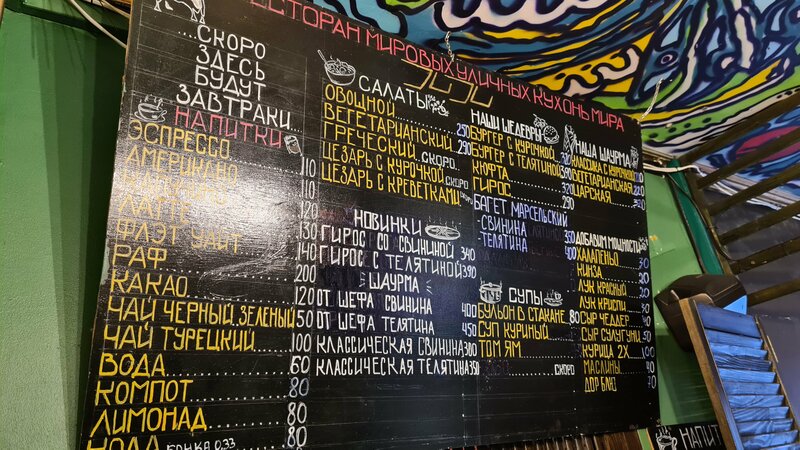 РЕСТОРАН МИРОВЫХ УЛИЧНЫХ КУХОНЬ МИРА
....СКОРО
ЗДЕСЬ
БУДУТ
ЗАВТРАКИ...
НАПИТКИ
ЭСПРЕССО
АМЕРИКАНО 110
110
ЛАТТЕ 120
ФЛЭТ УАЙТ 130
РАФ 140
КАКАО 200
ЧАЙ ЧЕРНЫЙ, ЗЕЛЕНЫЙ 120
ЧАЙ ТУРЕЦКИЙ 50
ВОДА 100
КОМПОТ 60
ЛИМОНАД 80
КОЛА БАНКА 0,33 80
САЛАТЫ
ОВОЩНОЙ
ВЕГЕТАРИАНСКИЙ 250
ГРЕЧЕСКИЙ СКОРО 290
ЦЕЗАРЬ С КУРОЧКОЙ СКОРО
ЦЕЗАРЬ С КРЕВЕТКАМИ СКОРО
НОВИНКИ
ГИРОС СО СВИНИНОЙ 340
ГИРОС С ТЕЛЯТИНОЙ 390
ШАУРМА
ОТ ШЕФА СВИНИНА 400
ОТ ШЕФА ТЕЛЯТИНА 450
КЛАССИЧЕСКАЯ СВИНИНА 300
КЛАССИЧЕСКАЯ ТЕЛЯТИНА 350
НАШИ ШЕДЕВРЫ
БУРГЕР С КУРОЧКОЙ
БУРГЕР С ТЕЛЯТИНОЙ
КЮФТА
ГИРОС 290
БАГЕТ МАРСЕЛЬСКИЙ
-СВИНИНА 350
-ТЕЛЯТИНА 400
СУПЫ
БУЛЬОН В СТАКАНЕ 80
СУП КУРИНЫЙ
ТОМ ЯМ
СКОРО
НАША ШАУРМА
КЛАССИКА С КУРОЧКОЙ
ВЕГЕТАРИАНСКАЯ
ЦАРСКАЯ
ДОБАВИМ МОЩНОСТЬ
ХАЛАПЕНЬО 30
КИНЗА 20
ЛУК КРАСНЫЙ
ЛУК КРИСПИ
СЫР ЧЕДДЕР
СЫР СУЛУГУНИ
КУРИЦА 2Х 100
МАСЛИНЫ
ДОР БЛЮ 70
НАПИТ